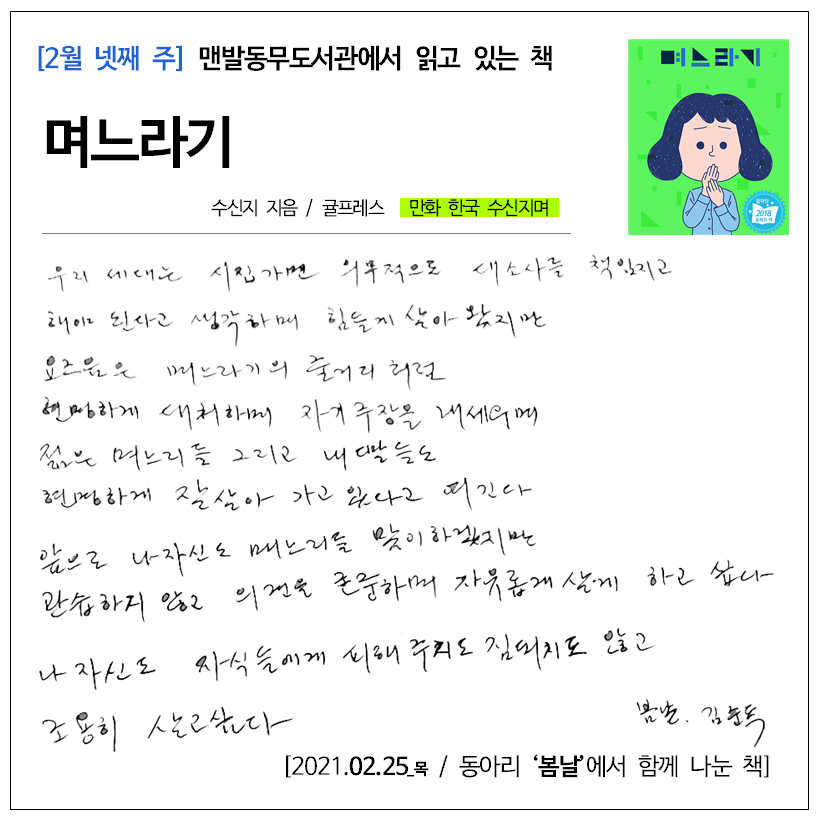 [2월 넷째 주] 맨발동무도서관에서 읽고 있는 책
며느라기
며느라기
알라딘
2018
올해의 책
수신지 지음 / 귤프레스 만화 한국 수신지며
우리 세대는 시집가면 의무적으로 대소사를 책임지고
해야 된다고 생각하며 힘들게 살아 왔지만
요즈음은 며느라기의 줄거리처럼
현명하게 대처하며 자기주장을 내세우며
젊은 며느리들 그리고 내 딸들도
현명하게 잘살아 가고 있다고 여긴다
앞으로 나자신도 며느리를 맞이하겠지만
관습하지 않고 의견을 존중하며 자유롭게 살게 하고 싶다
나 자신도 자식들에게 피해 주지도 짐되지도 않고
조용히 살고싶다
봄날. 김
[2021.02.25_목 / 동아리 ‘봄날’에서 함께 나눈 책]